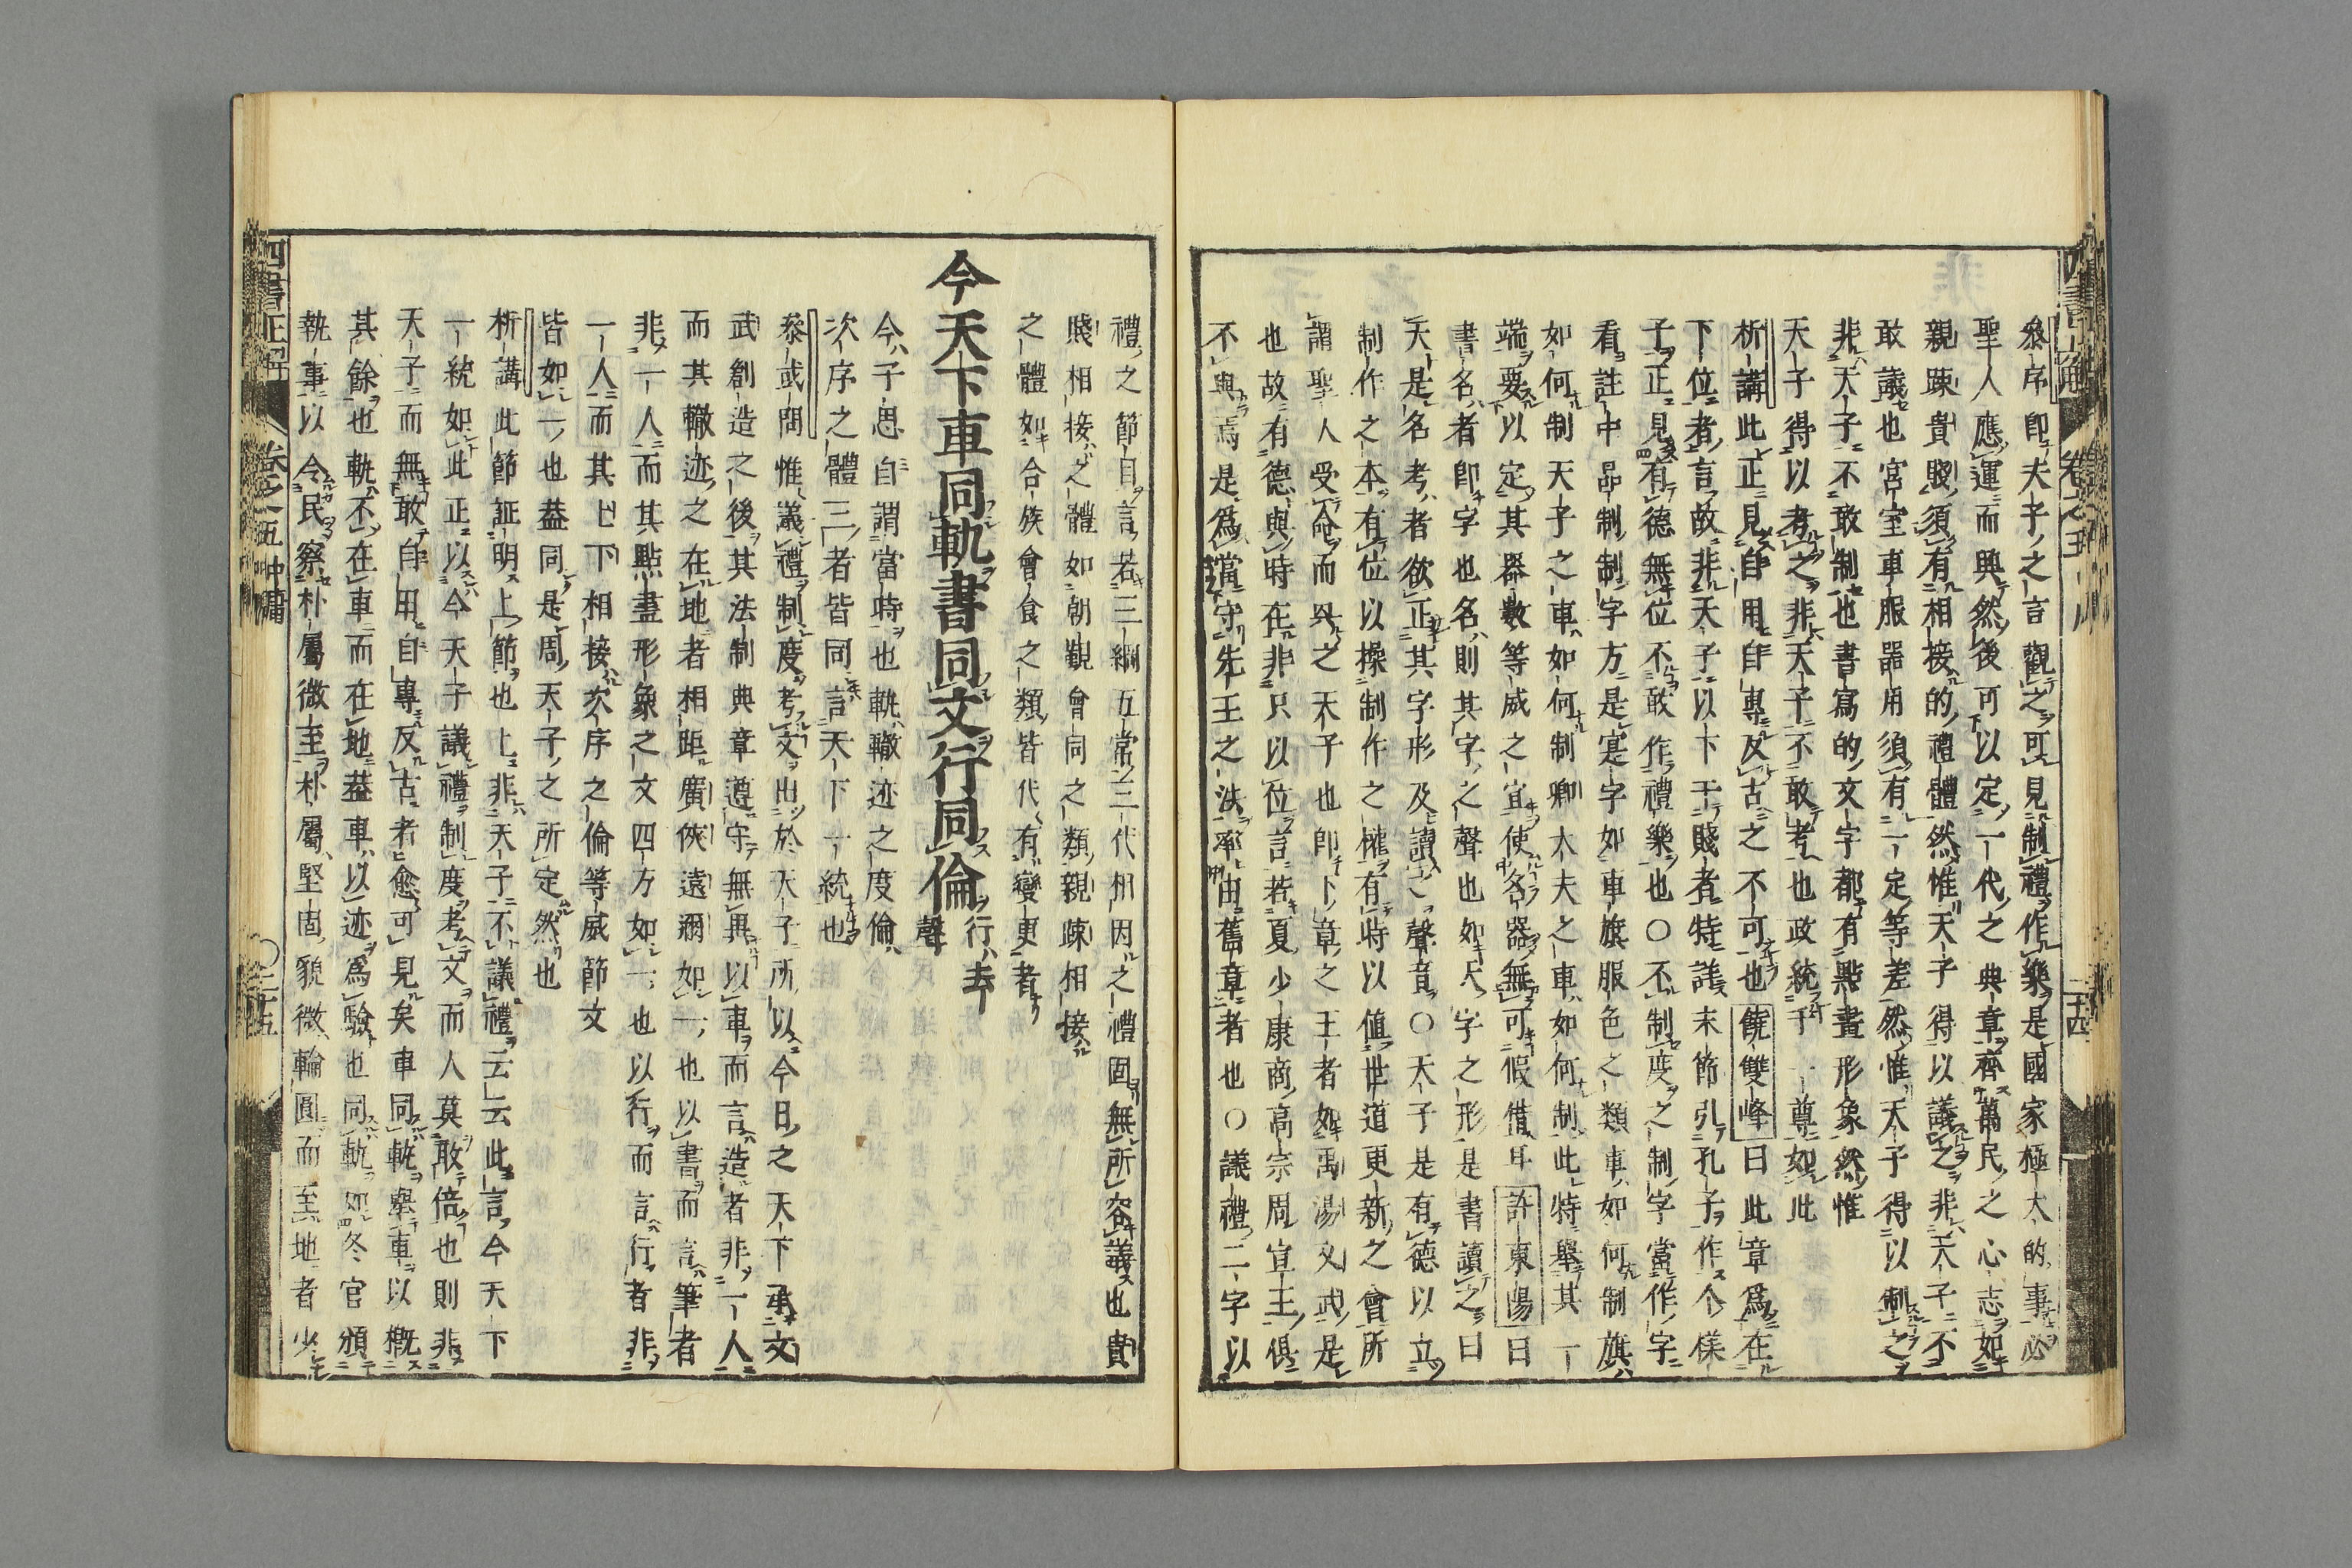 叅序卽夫子之言觀之可見制禮作樂是國家極大的事必
聖人應運而興然後可以定一代之典章齊萬民之心志如
親疎貴賤須有相接的禮體然惟天子得以議之非天子不
敢議也宮室車服器用須有一定等差然惟天子得以制之
非天子不敢制也書寫的文字都有點畫形象然惟
天子得以考之非天子不敢考也政統于一尊如此
析講此正見自用自專反古之不可也饒雙峰曰此章爲在
下位者言故非天子以下干賤者特議末節引孔子作个㨾
子正見有德無位不敢作禮樂也○不制度之制字當作字
看註中品制制字方是寔字如車旗服色之類車如何制旗
如何制天子之車如何制卿大夫之車如何制此特舉其一
端要以定其器數等威之宜使名器無可假借耳許東陽曰
書名者卽字也名則其字之聲也如尺字之形是書讀之曰
天是名考者欲正其字形及讀之聲音○天子是有德以立
制作之本有位以操制作之權有時以値世道更新之會所
謂聖人受命而爲之天子也卽下章之王者如禹湯文武是
也故有德與時在非只以位言若夏少康商高宗周宣王俱
不與焉是爲當守先王之法率由舊章者也○議禮二字以
四書正解
卷之五
二十四
禮之節目言若三綱五常三代相因之禮固無所容議也貴
賤相接之體如朝覲會同之類親疎相接
之體如合族會食之類皆代有變更者
今天下車同軌書同文行同倫行去聲
今子思自謂當時也軌轍迹之度倫
次序之體三者皆同言天下一統也
叅或問惟議禮制度考文出於天子所以今日之天下承文
武創造之後其法制典章遵守無異以車而言造者非一人
而其轍迹之在地者相距廣俠遠邇如一也以書而言筆者
非一人而其點畫形象之文四方如一也以行而言行者非
一人而其上下相接次序之倫等威節文
皆如一也葢同是周天子之所定然也
析講此節証明上節也上非天子不議禮云云此言今天下
一統如此正以今天子議禮制度考文而人莫敢倍也則非
天子而無敢自用自專反古者愈可見矣車同軌舉車以槪
其餘也軌不在車而在地葢車以迹爲驗也同軌如冬官頒
執事以令民察朴屬微至朴屬堅固貌微輪圓而至地者少
四書正解
卷之五中庸
○二十五